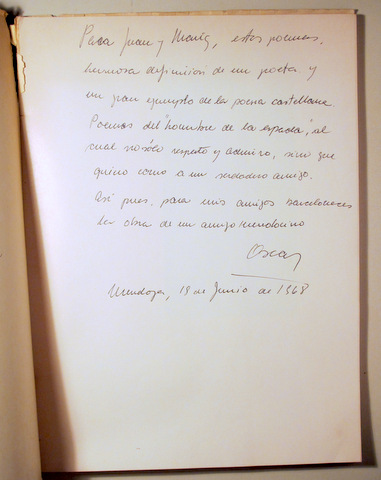 Para Juan y María, estos poemas,
hermosa definición de un poeta y
un gran ejemplo de la poesía castellana.
Poemas del "hombre de la espada", al
cual no sólo respeto y admiro, sino que
quiero como a un verdadero amigo.
Así pues, para mis amigos barceloneses
la obra de un amigo mendocino
Oscar
Mendoza, 19 de Junio de 1968